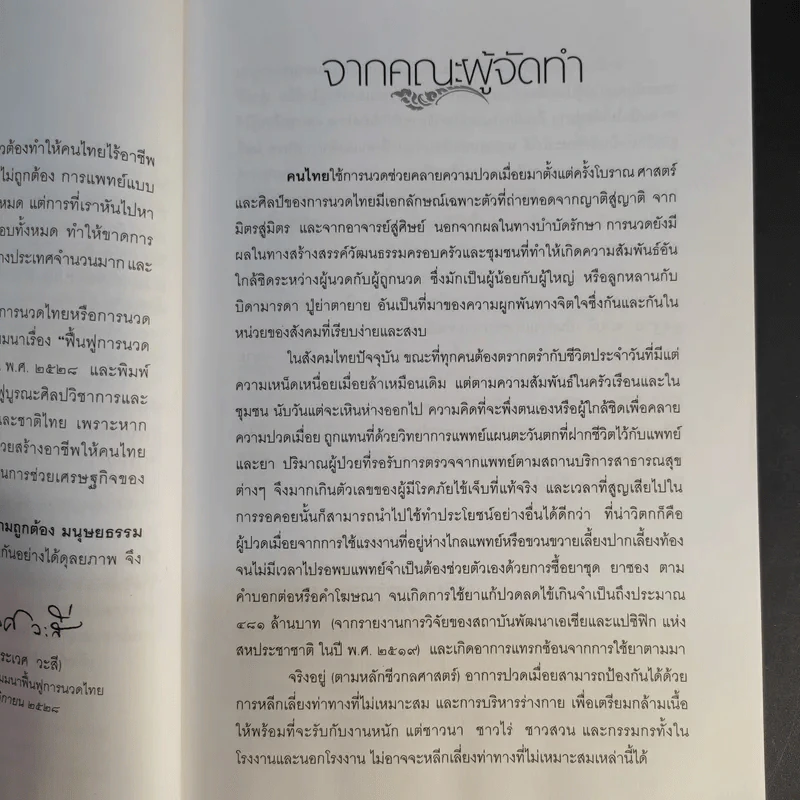 วต้องทำให้คนไทยไร้อาชีพ
ไม่ถูกต้อง การแพทย์แบบ
หมด แต่การที่เราหันไปหา
อบทั้งหมด ทำให้ขาดการ
างประเทศจำนวนมาก และ
การนวดไทยหรือการนวด
มมนาเรื่อง "ฟื้นฟูการนวด
พ.ศ. ๒๕๒๘ และพิมพ์
ฟูบูรณะศิลปวิชาการและ
และชาติไทย เพราะหาก
วยสร้างอาชีพให้คนไทย
นการช่วยเศรษฐกิจของ
ามถูกต้อง มนุษยธรรม
กันอย่างได้ดุลยภาพ จึง
ระเวศ วะสี)
มมนาฟื้นฟูการนวดไทย
๒๕๒๘
จากคณะผู้จัดทำ
คนไทยใช้การนวดช่วยคลายความปวดเมื่อยมาตั้งแต่ครั้งโบราณ ศาสตร์
และศิลป์ของการนวดไทยมีเอกลักษณ์เฉพาะตัวที่ถ่ายทอดจากญาติสู่ญาติ จาก
มิตรสู่มิตร และจากอาจารย์สู่ศิษย์ นอกจากผลในทางบำบัดรักษา การนวดยังมี
ผลในทางสร้างสรรค์วัฒนธรรมครอบครัวและชุมชนที่ทำให้เกิดความสัมพันธ์อัน
ใกล้ชิดระหว่างผู้นวดกับผู้ถูกนวด ซึ่งมักเป็นผู้น้อยกับผู้ใหญ่ หรือลูกหลานกับ
บิดามารดา ปู่ย่าตายาย อันเป็นที่มาของความผูกพันทางจิตใจซึ่งกันและกันใน
หน่วยของสังคมที่เรียบง่ายและสงบ
ในสังคมไทยปัจจุบัน ขณะที่ทุกคนต้องตรากตรำกับชีวิตประจำวันที่มีแต่
ความเหน็ดเหนื่อยเมื่อยล้าเหมือนเดิม แต่ตามความสัมพันธ์ในครัวเรือนและใน
ชุมชน นับวันแต่จะเหินห่างออกไป ความคิดที่จะพึ่งตนเองหรือผู้ใกล้ชิดเพื่อคลาย
ความปวดเมื่อย ถูกแทนที่ด้วยวิทยาการแพทย์แผนตะวันตกที่ฝากชีวิตไว้กับแพทย์
และยา ปริมาณผู้ป่วยที่รอรับการตรวจจากแพทย์ตามสถานบริการสาธารณสุข
ต่างๆ จึงมากเกินตัวเลขของผู้มีโรคภัยไข้เจ็บที่แท้จริง และเวลาที่สูญเสียไปใน
การรอคอยนั้นก็สามารถนำไปใช้ทำประโยชน์อย่างอื่นได้ดีกว่า ที่น่าวิตกก็คือ
ผู้ปวดเมื่อยจากการใช้แรงงานที่อยู่ห่างไกลแพทย์หรือขวนขวายเลี้ยงปากเลี้ยงท้อง
จนไม่มีเวลาไปรอพบแพทย์จำเป็นต้องช่วยตัวเองด้วยการซื้อยาชุด ยาซอง ตาม
คำบอกต่อหรือคำโฆษณา จนเกิดการใช้ยาแก้ปวดลดไข้เกินจำเป็นถึงประมาณ
๔๘๑ ล้านบาท (จากรายงานการวิจัยของสถาบันพัฒนาเอเชียและแปซิฟิก แห่ง
สหประชาชาติ ในปี พ.ศ. ๒๕๑๙) และเกิดอาการแทรกซ้อนจากการใช้ยาตามมา
จริงอยู่ (ตามหลักชีวกลศาสตร์) อาการปวดเมื่อยสามารถป้องกันได้ด้วย
การหลีกเลี่ยงท่าทางที่ไม่เหมาะสม และการบริหารร่างกาย เพื่อเตรียมกล้ามเนื้อ
ให้พร้อมที่จะรับกับงานหนัก แต่ชาวนา ชาวไร่ ชาวสวน และกรรมกรทั้งใน
โรงงานและนอกโรงงาน ไม่อาจจะหลีกเลี่ยงท่าทางที่ไม่เหมาะสมเหล่านี้ได้